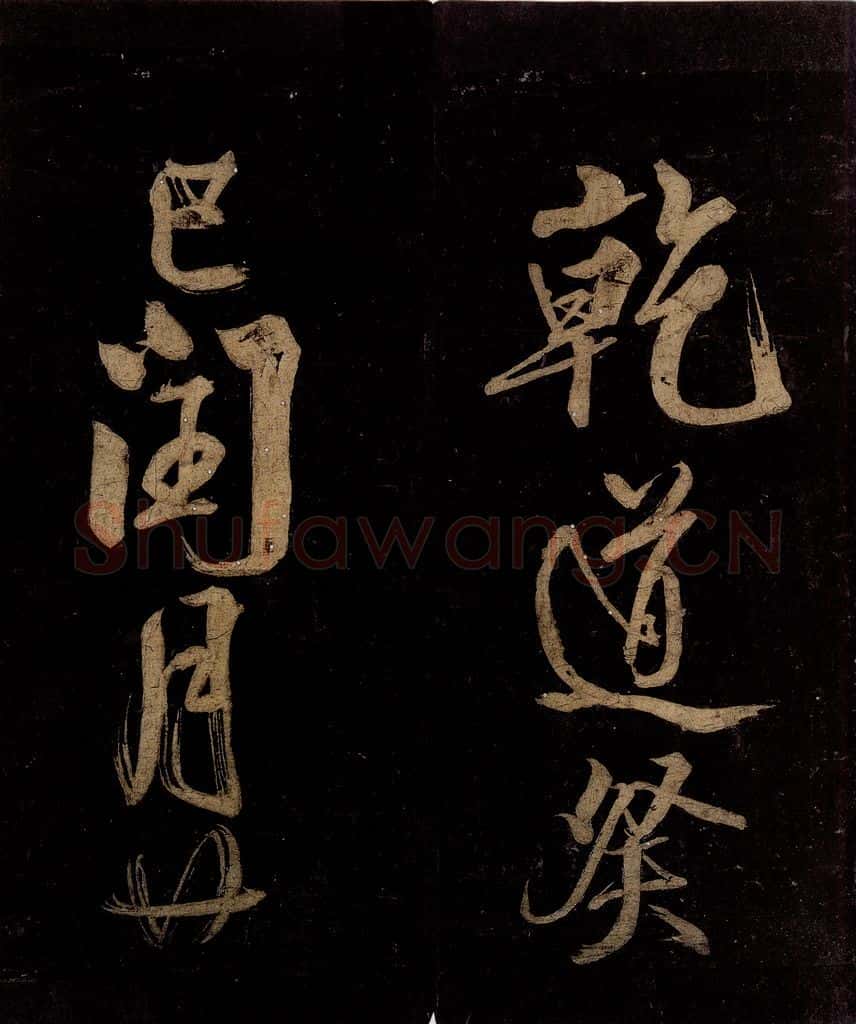 乾道癸
巳閏月廿
Shufawang.CN